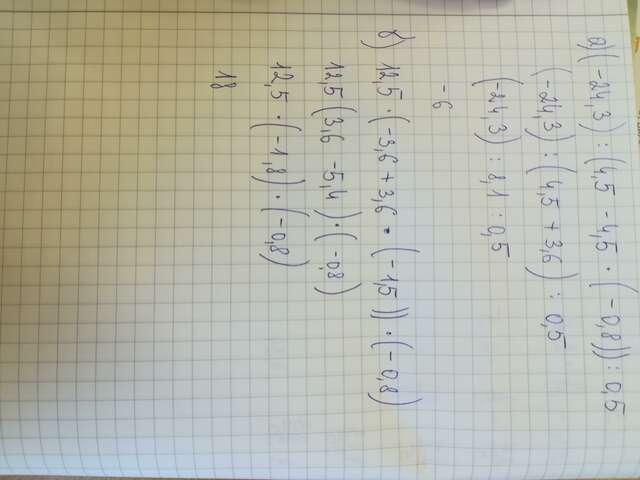 а) (-24,3) : (4,5 - 4,5 · (-0,8)) : 0,5
(-24,3) : (4,5 + 3,6) : 0,5
(-24,3) : 8,1 : 0,5
-6
б) 12,5 · (-3,6 + 3,6 · (-1,5)) · (-0,8)
12,5 (3,6 -5,4) · (-0,8)
12,5 · (-1,8) · (-0,8)
18